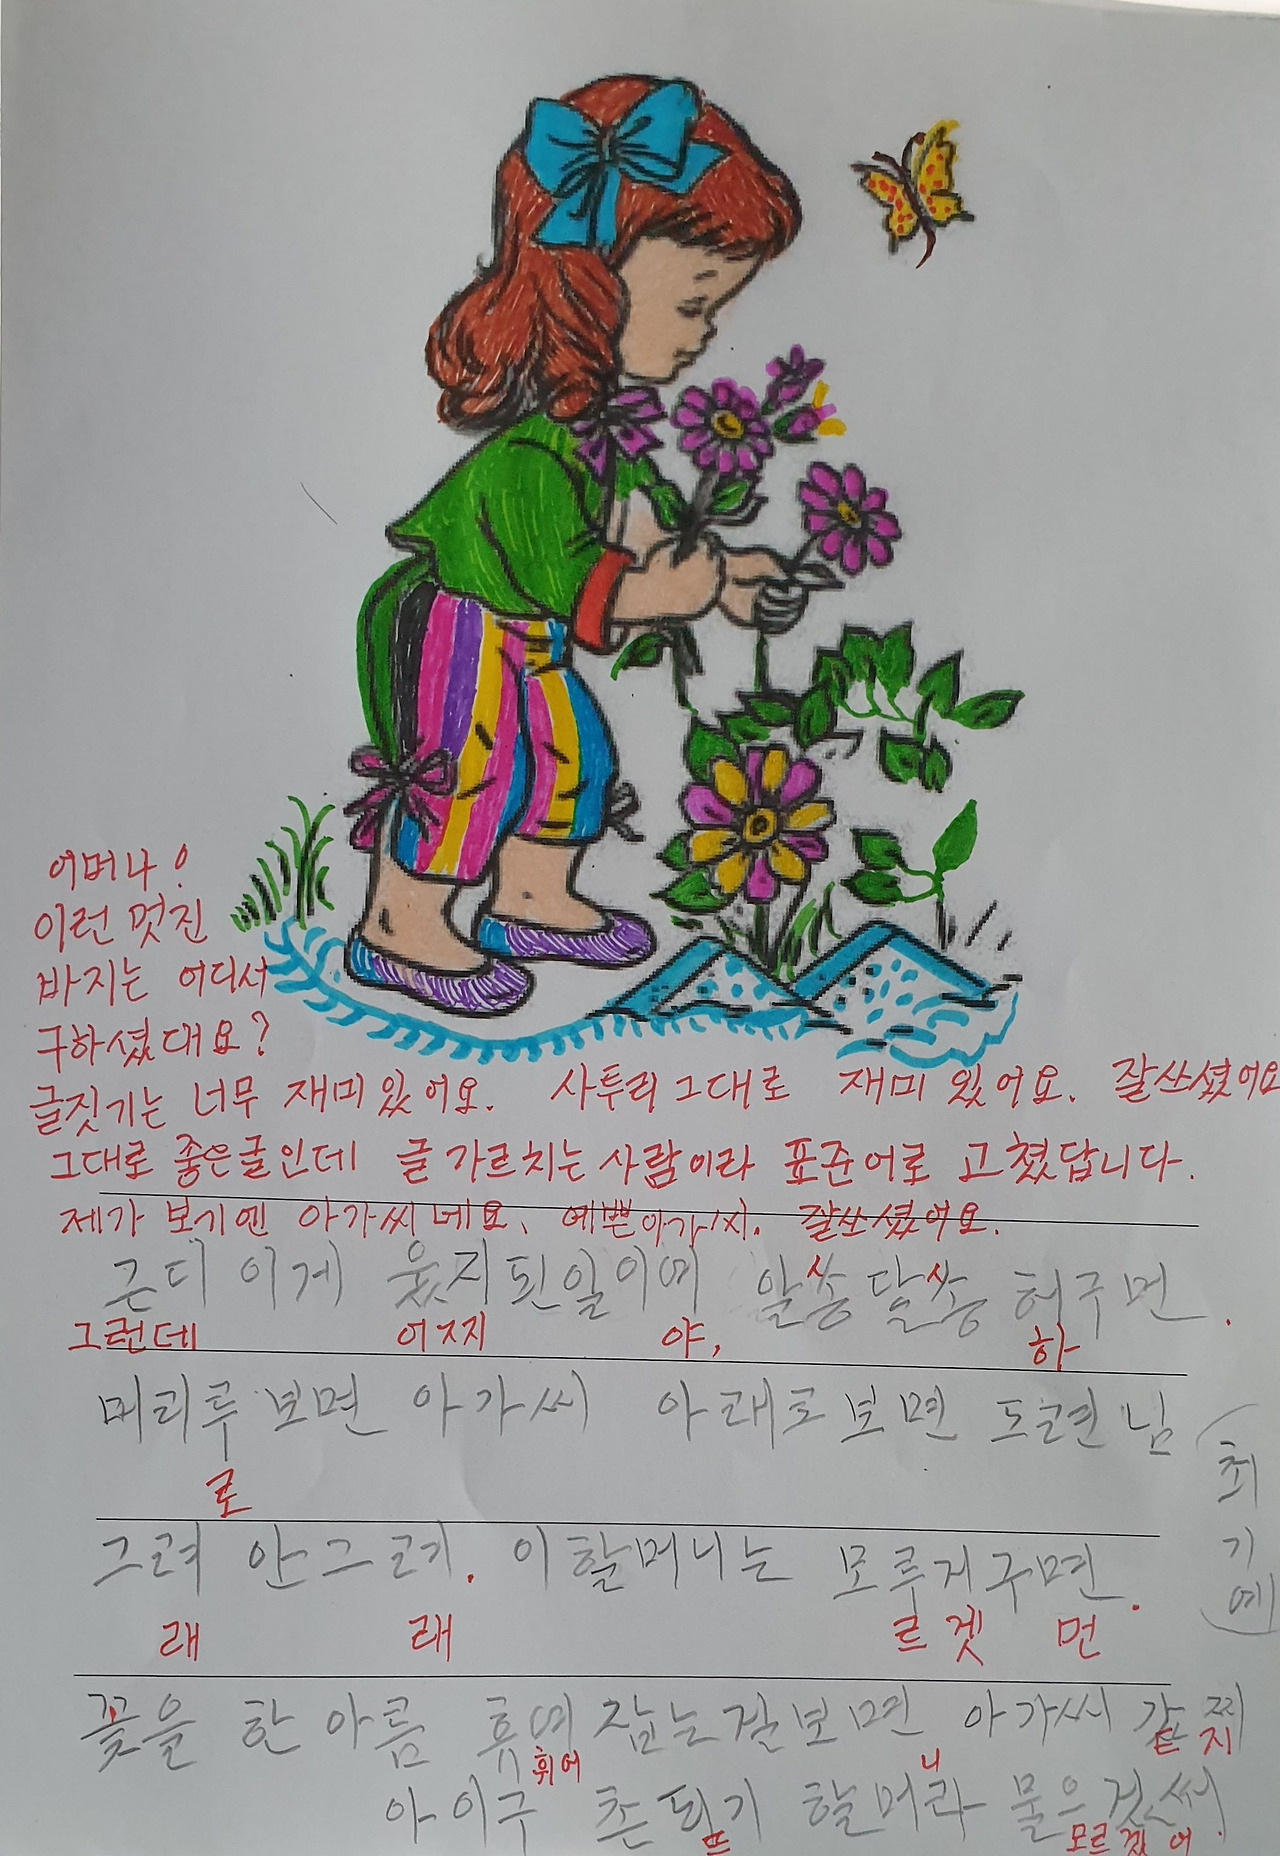 어머나!
이런 멋진
바지는 어디서
구하셨대요?
글짓기는 너무 재미있어요. 사투리 그대로 재미있어요. 잘쓰셨어요
그대로 좋은글인데 글 가르치는 사람이라 표준어로 고쳤답니다.
제가 보기엔 아가씨네요. 예쁜아가씨. 잘쓰셨어요.
근디 이게 웂지된일이여 알쏭달쏭 허구먼.
그런데 어찌 야, 하
머리루 보면 아가씨 아래로 보면 도련님
로
그려 안그려. 이할머니는 모루게구면.
래 래 르 겟 먼
꽃을 한아름 휴여 잡는걸보면 아가씨 같찌
휘어 트 지
아이구 촌 할머
니
모르겠어
최기예